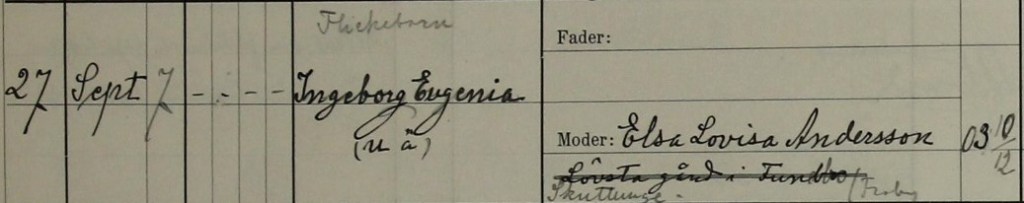 Flickebarn
Fader:
27 Sept 7 - - - - Ingeborg Eugenia
(u ä)
Moder: Elsa Lovisa Andersson 03 10/12
Lövsta gård i Funbo
Skuttunge.